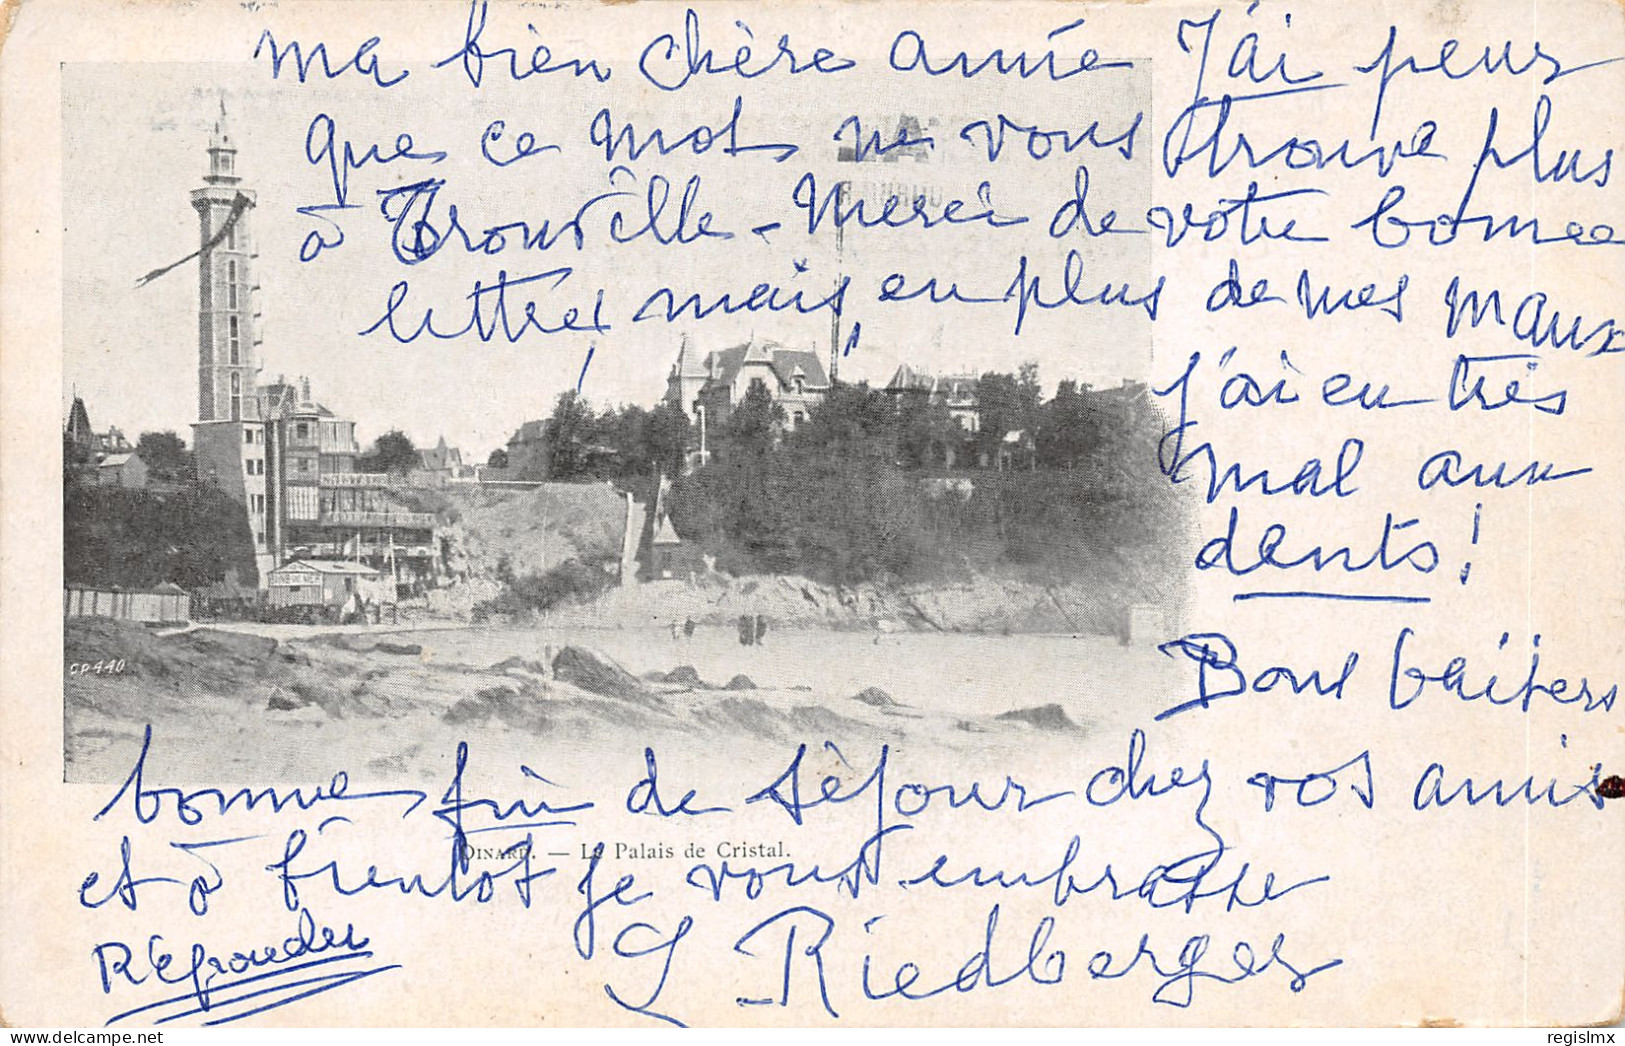 ma bien chère amie J'ai peur
que ce mot ne vous trouve plus
à Trouville - Merci de votre bonne
lettre, mais, en plus de mes maux
j'ai eu très
mal aux
dents !
Bons baisers
bonne fin de séjour chez vos amis
et à bientôt je vous embrasse
Répondu
L Riedberger
Dinard. — Le Palais de Cristal.
CP 440
regislmx